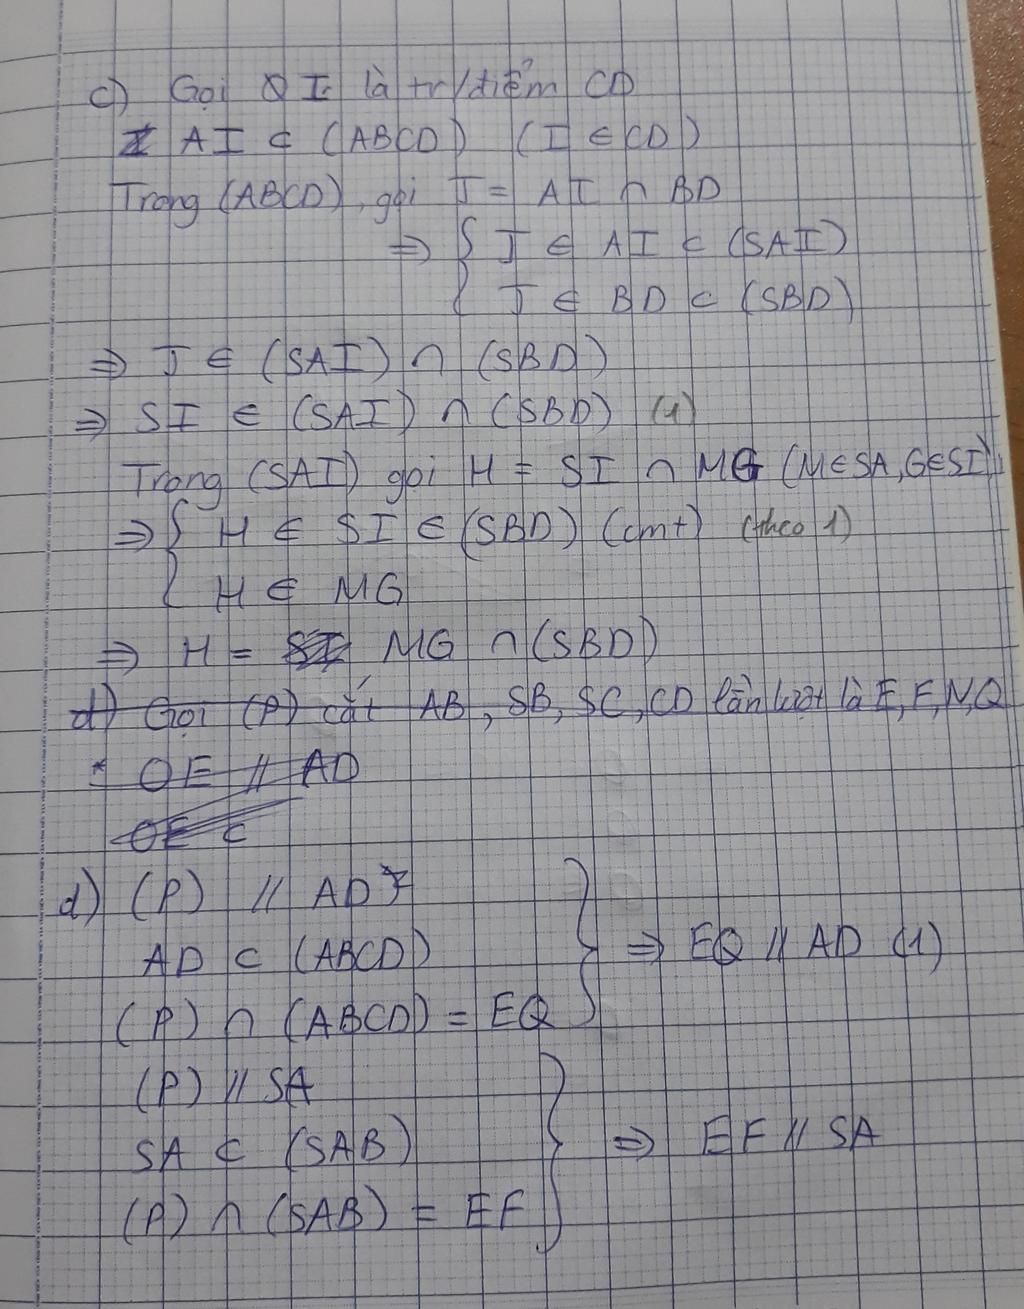 c) Gọi I là tr/điểm CD
AI ⊂ (ABCD) (I ∈ CD)
Trong (ABCD), gọi J = AI ∩ BD
⇒ { J ∈ AI ⊂ (SAI)
J ∈ BD ⊂ (SBD)
⇒ J ∈ (SAI) ∩ (SBD)
⇒ SI ∈ (SAI) ∩ (SBD) (1)
Trong (SAI) gọi H = SI ∩ MG (M∈SA, G∈SI)
⇒ { H ∈ SI ∈ (SBD) (cmt) (theo 1)
H ∈ MG
⇒ H = MG ∩ (SBD)
d) Gọi (P) cắt AB, SB, SC, CD lần lượt là E, F, N, Q
* OE // AD
OE ⊂
d) (P) // AD
AD ⊂ (ABCD)
(P) ∩ (ABCD) = EQ } ⇒ EQ // AD (1)
(P) // SA
SA ⊂ (SAB)
(P) ∩ (SAB) = EF } ⇒ EF // SA